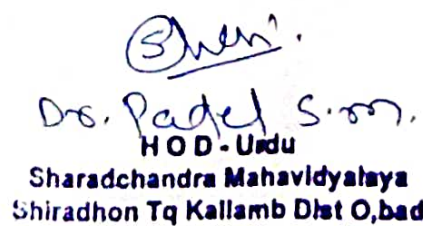 Dr. Patel S.M.
H O D - Urdu
Sharadchandra Mahavidyalaya
Shiradhon Tq Kallamb Dist O,bad